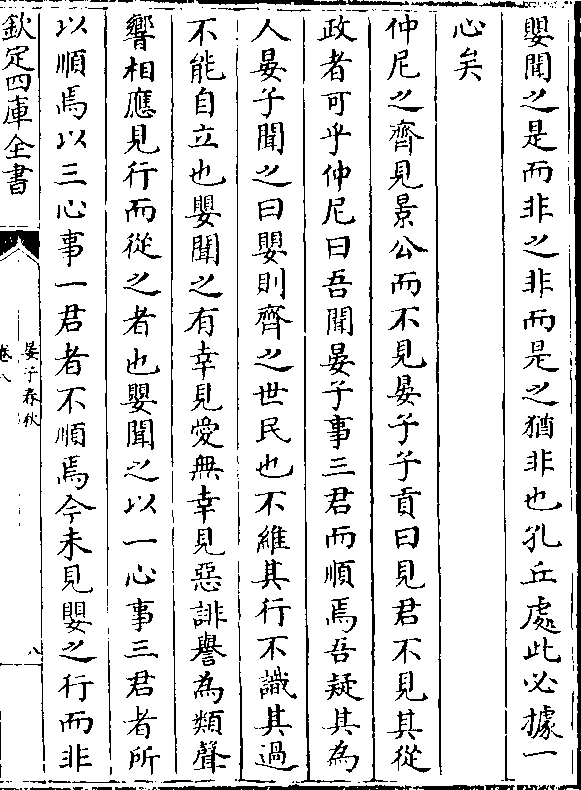 嬰聞之是而非之非而是之猶非也孔丘處此必據一
心矣
仲尼之齊見景公而不見晏子子貢曰見君不見其從
政者可乎仲尼曰吾聞晏子事三君而順焉吾疑其為
人晏子聞之曰嬰則齊之世民也不維其行不識其過
不能自立也嬰聞之有幸見愛無幸見惡誹譽為類聲
響相應見行而從之者也嬰聞之以一心事三君者所
以順焉以三心事一君者不順焉今未見嬰之行而非
欽定四庫全書
晏子春秋
卷八
八